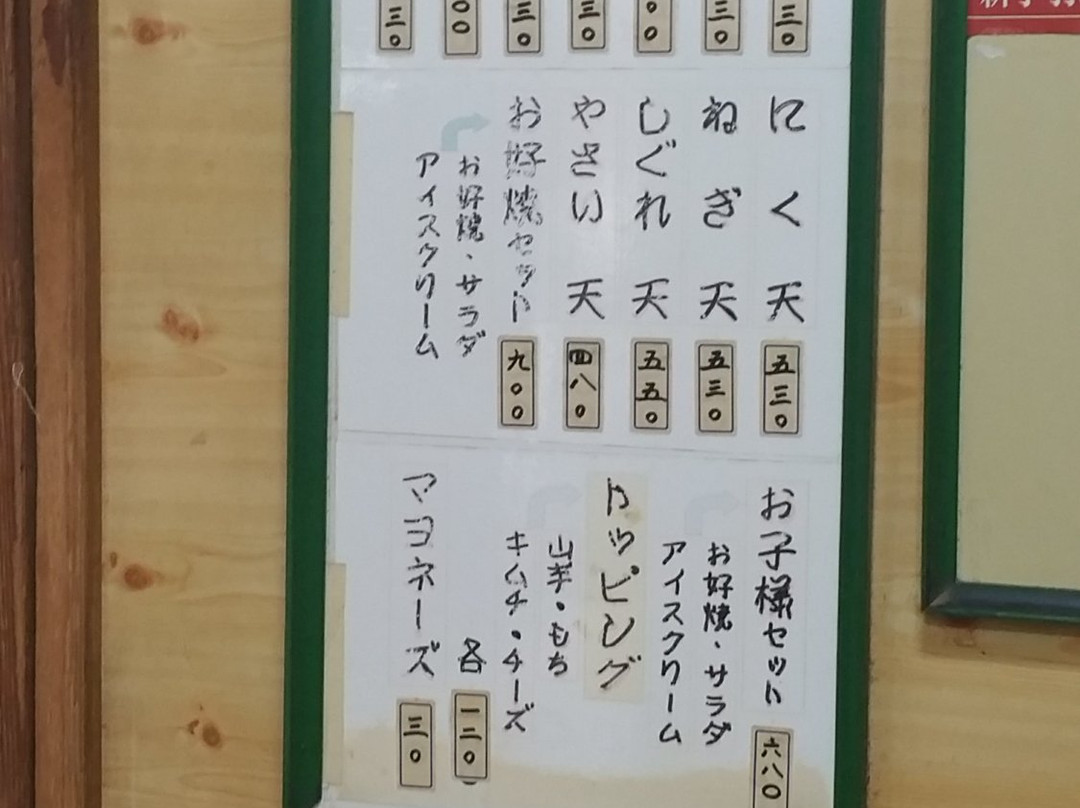 三〇
三〇
〇〇
三〇
三〇
〇〇
三〇
にく天
五三〇
ねぎ天
五三〇
しぐれ天
五五〇
やさい天
四八〇
お好焼セット
九〇〇
お好焼・サラダ
アイスクリーム
お子様セット
六八〇
お好焼・サラダ
アイスクリーム
トッピング
山芋・もち
キムチ・チーズ
各
一三〇
マヨネーズ
三〇